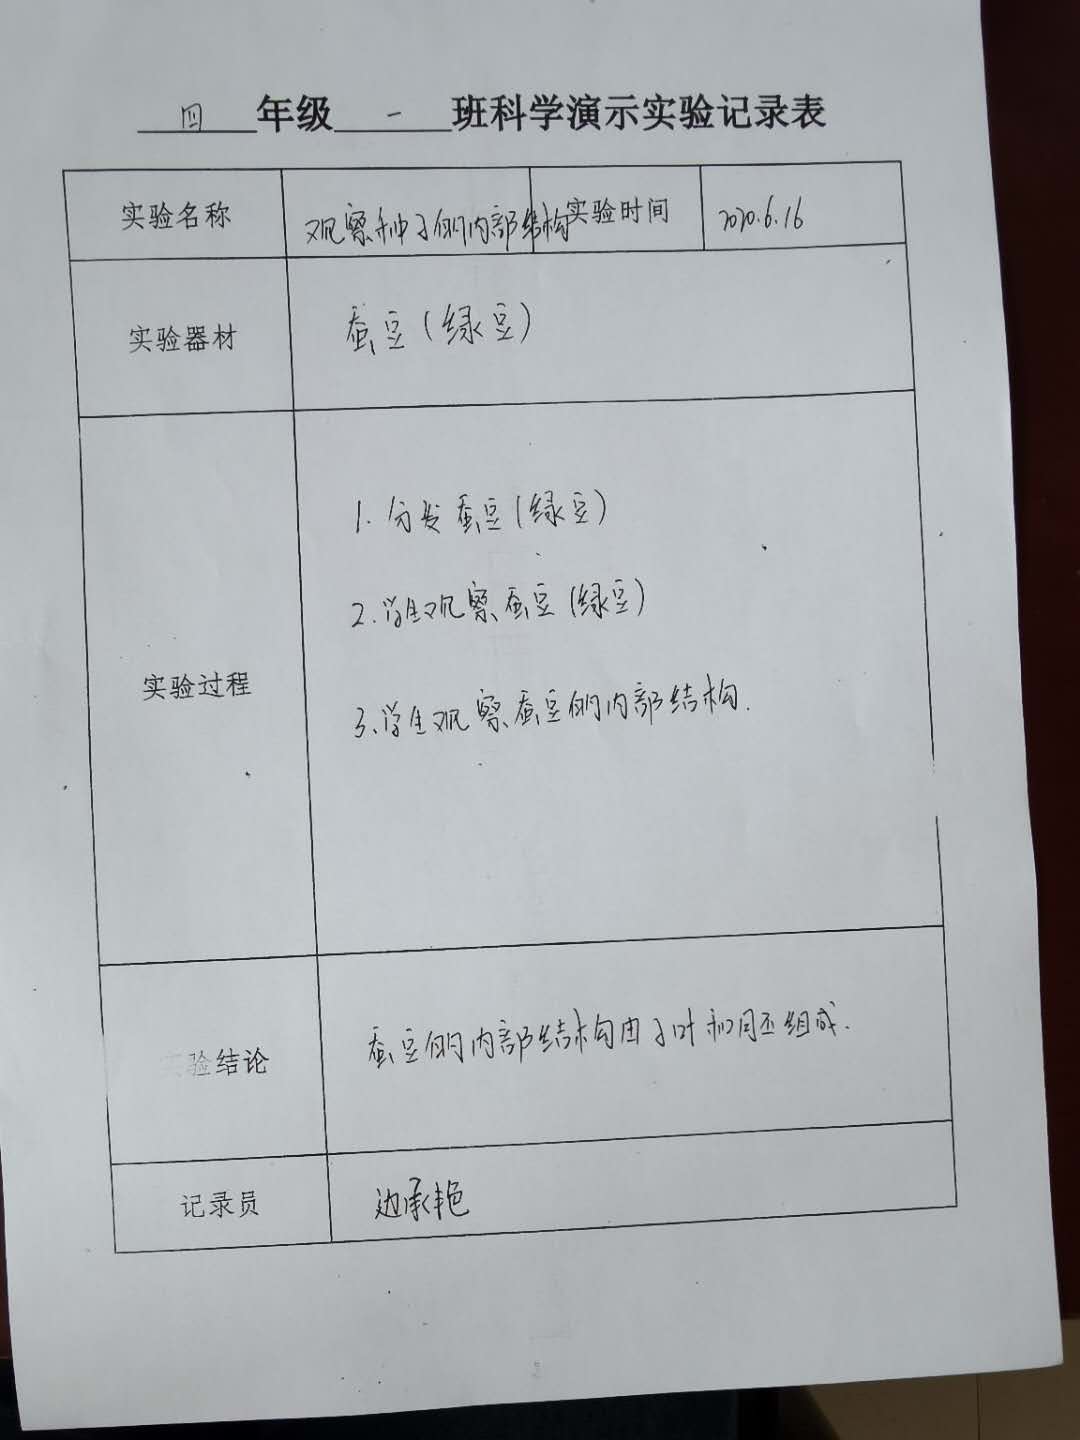 四年级一班科学演示实验记录表
实验名称 观察种子的内部结构 实验时间 2020.6.16
实验器材 蚕豆(绿豆)
1.分发蚕豆(绿豆)
2.学生观察蚕豆(绿豆)
实验过程
3.学生观察蚕豆的内部结构.
实验结论 蚕豆的内部结构由子叶和胚组成.
记录员 边承艳